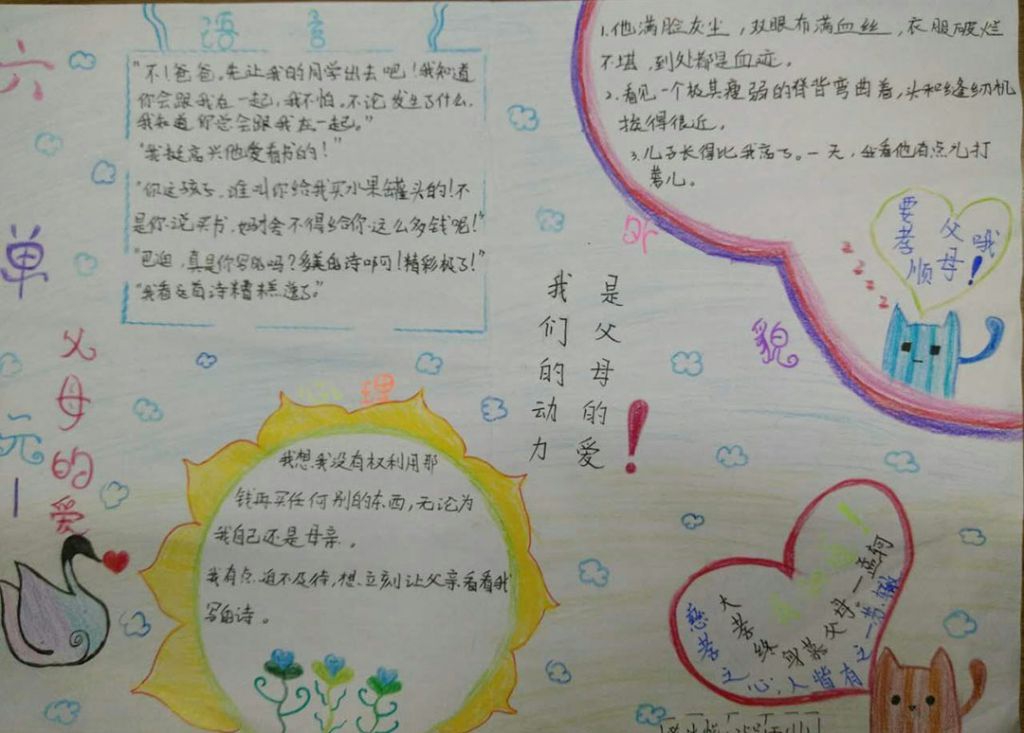 六单元
父母的爱
语言
"不！爸爸。先让我的同学出去吧！我知道
你会跟我在一起，我不怕。不论发生了什么，
我知道你总会跟我在一起。"
"我挺高兴他爱看书的！"
"你这孩子，谁叫你给我买水果罐头的！不
是你说买书，妈才舍不得给你这么多钱呢！"
"巴迪，真是你写的吗？多美的诗啊！精彩极了！"
"我看这首诗糟糕透了。"
1.他满脸灰尘，双眼布满血丝，衣服破烂
不堪，到处都是血迹。
2.看见一个极其瘦弱的脊背弯曲着，头和缝纫机
挨得很近。
3.儿子长得比我高了。一天，我看他有点儿打
蔫儿。
外貌
要孝顺父母哦！
z z z z z
我们的动力
是父母的爱！
心理
我想我没有权利用那
钱再买任何别的东西，无论为
我自己还是母亲。
我有点迫不及待，想立刻让父亲看看我
写的诗。
大孝终身慕父母。—孟轲
慈孝之心，人皆有之—苏辙